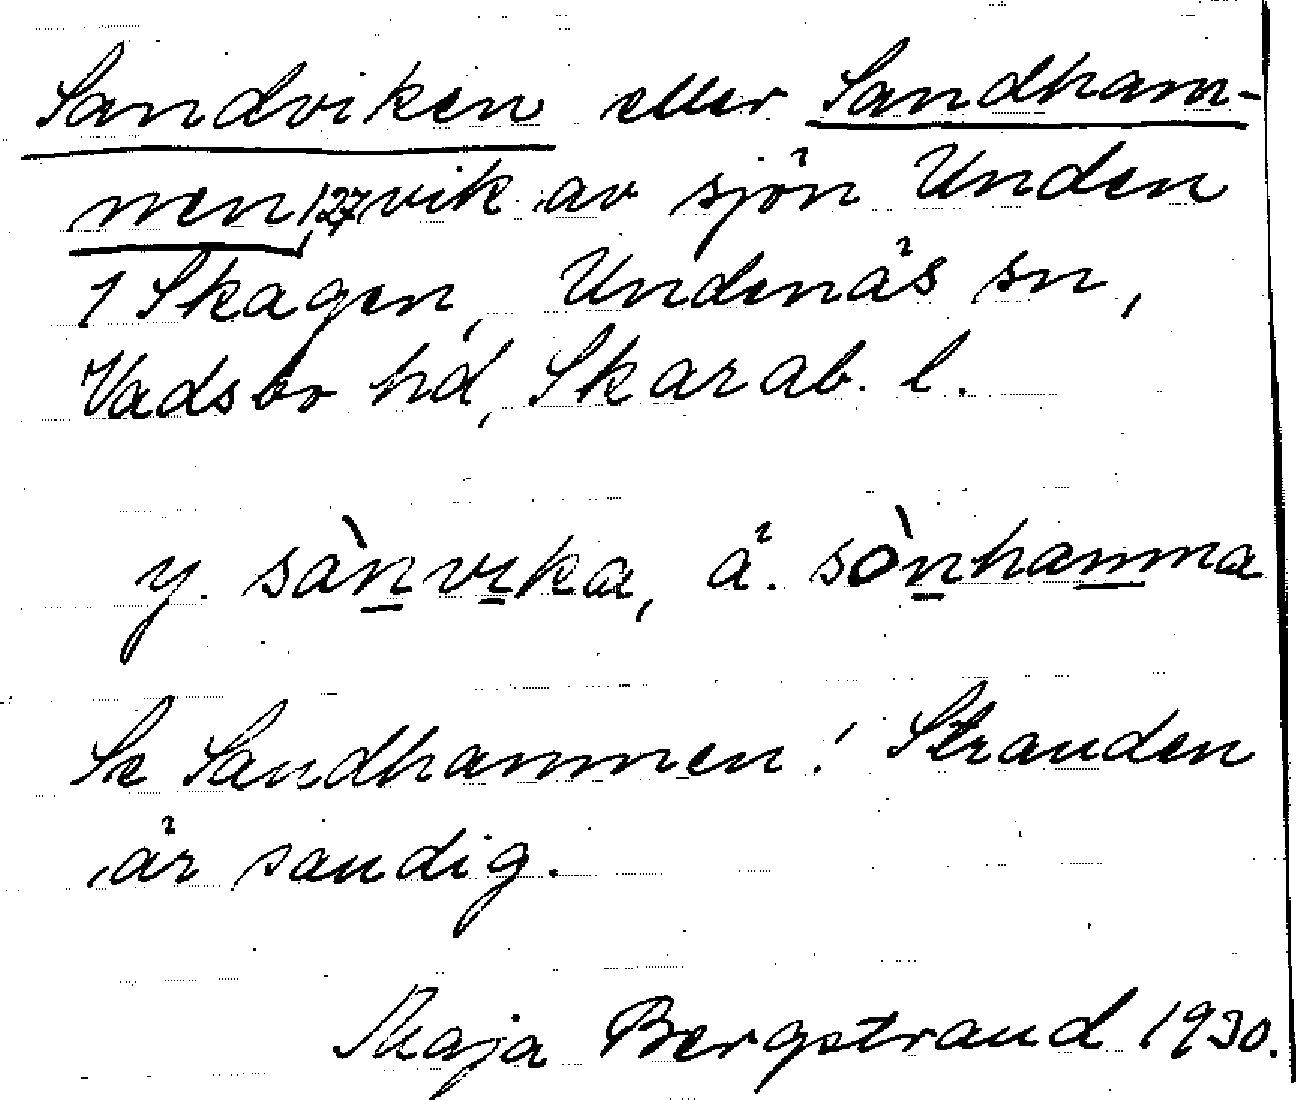 Sandviken eller Sandham-
men, 127, vik av sjön Unden
1 Skagen, Undenäs sn,
Vadsbo hd, Skarab. l.
y. sànvika, ä. sònhamma
Se Sandhammen! Stranden
är sandig.
Maja Bergstrand 1930.